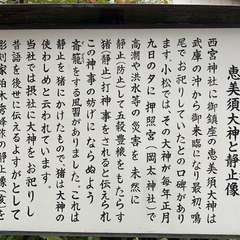 恵美須大神と静止像
西宮神社に御鎮座の恵美須大神は
武庫の沖から御来臨になり最初、鳴
尾でお祀りしていたとの口碑があり
ます。小松では、その大神が毎年正月
九日の夕に押照宮(岡太神社)で
高潮や洪水等の災害を未然に
静止(防止)して五穀豊穣をもたらす
猪(静止)打神事をされると伝えられ
この神事の妨げにならぬよう
斎籠をする風習がありました。これは
静止を猪にかけたもので、猪は大神の
使わしめと云われています。
当社では摂社に大神をお祀りし
昔話を後世に伝えるよすがとして
彫刻家